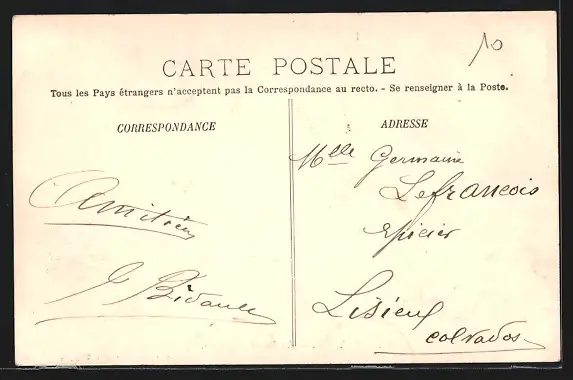 10
CARTE POSTALE
Tous les Pays étrangers n'acceptent pas la Correspondance au recto. - Se renseigner à la Poste.
CORRESPONDANCE
ADRESSE
Mlle Germaine
Lefrancois
épicier
Lisieux
calvados
Amitiés
Bidault